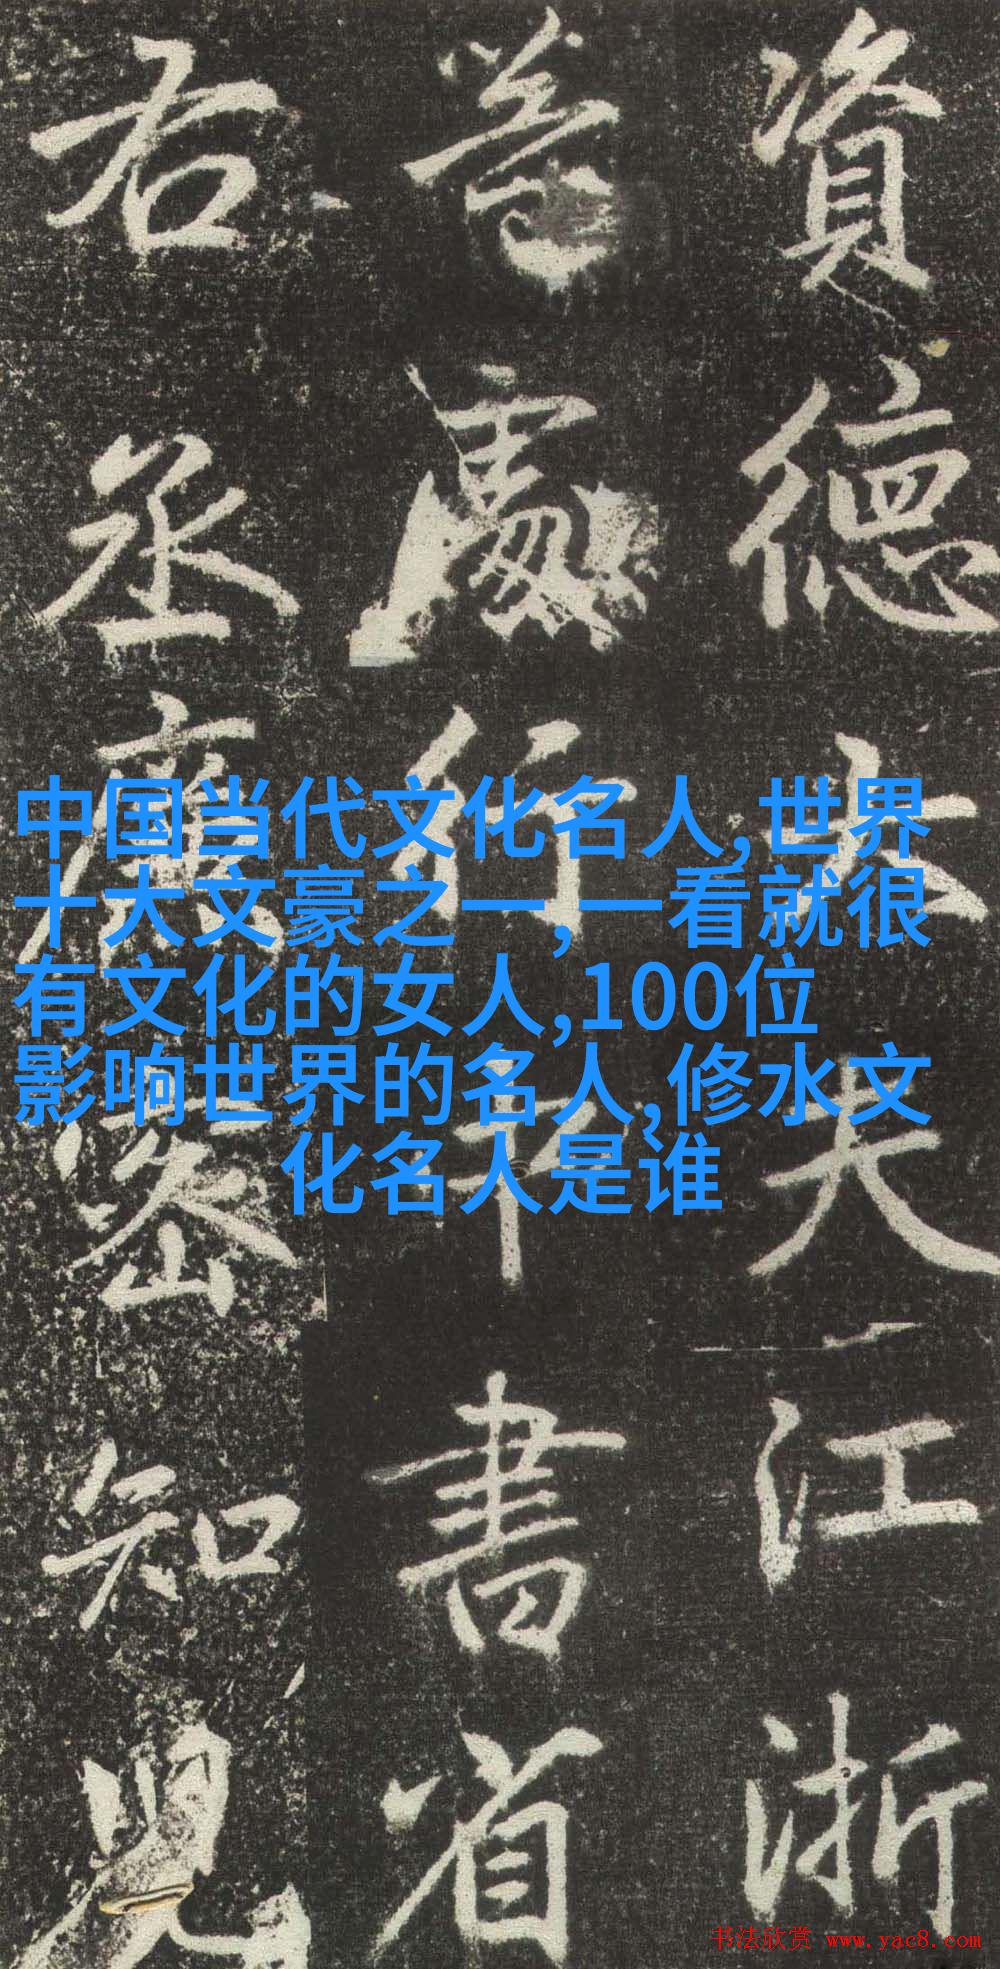 資德大夫江浙
等處行中書省
右丞廉密知兒
中国当代文化名人,世界
十大文豪之一,一看就很
有文化的女人,100位
影响世界的名人,修水文
化名人是谁
书法欣赏 www.yac8.com